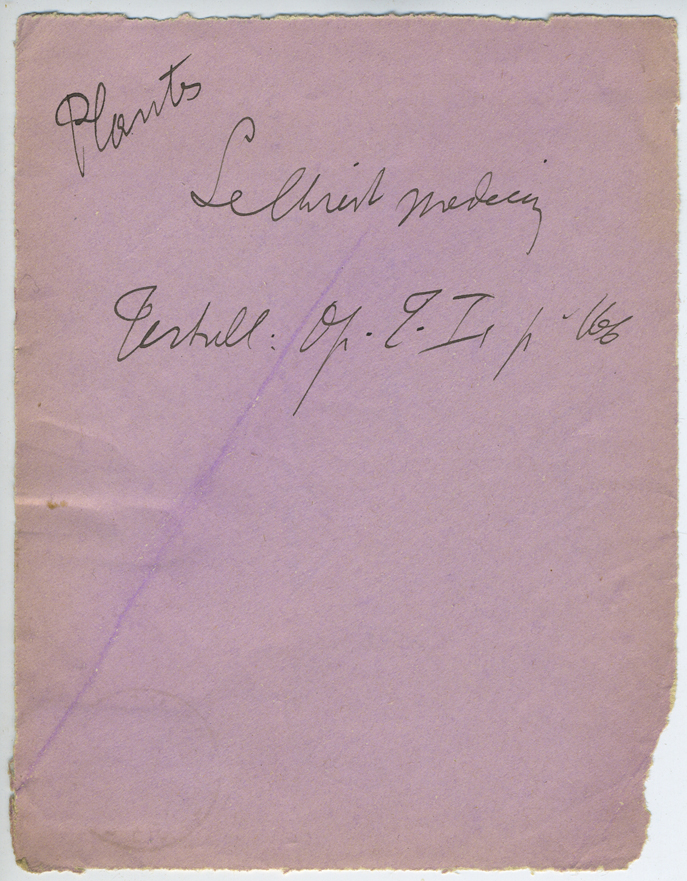 Plantes
Le Christ medecin
Tertull: Op. T. I, p.